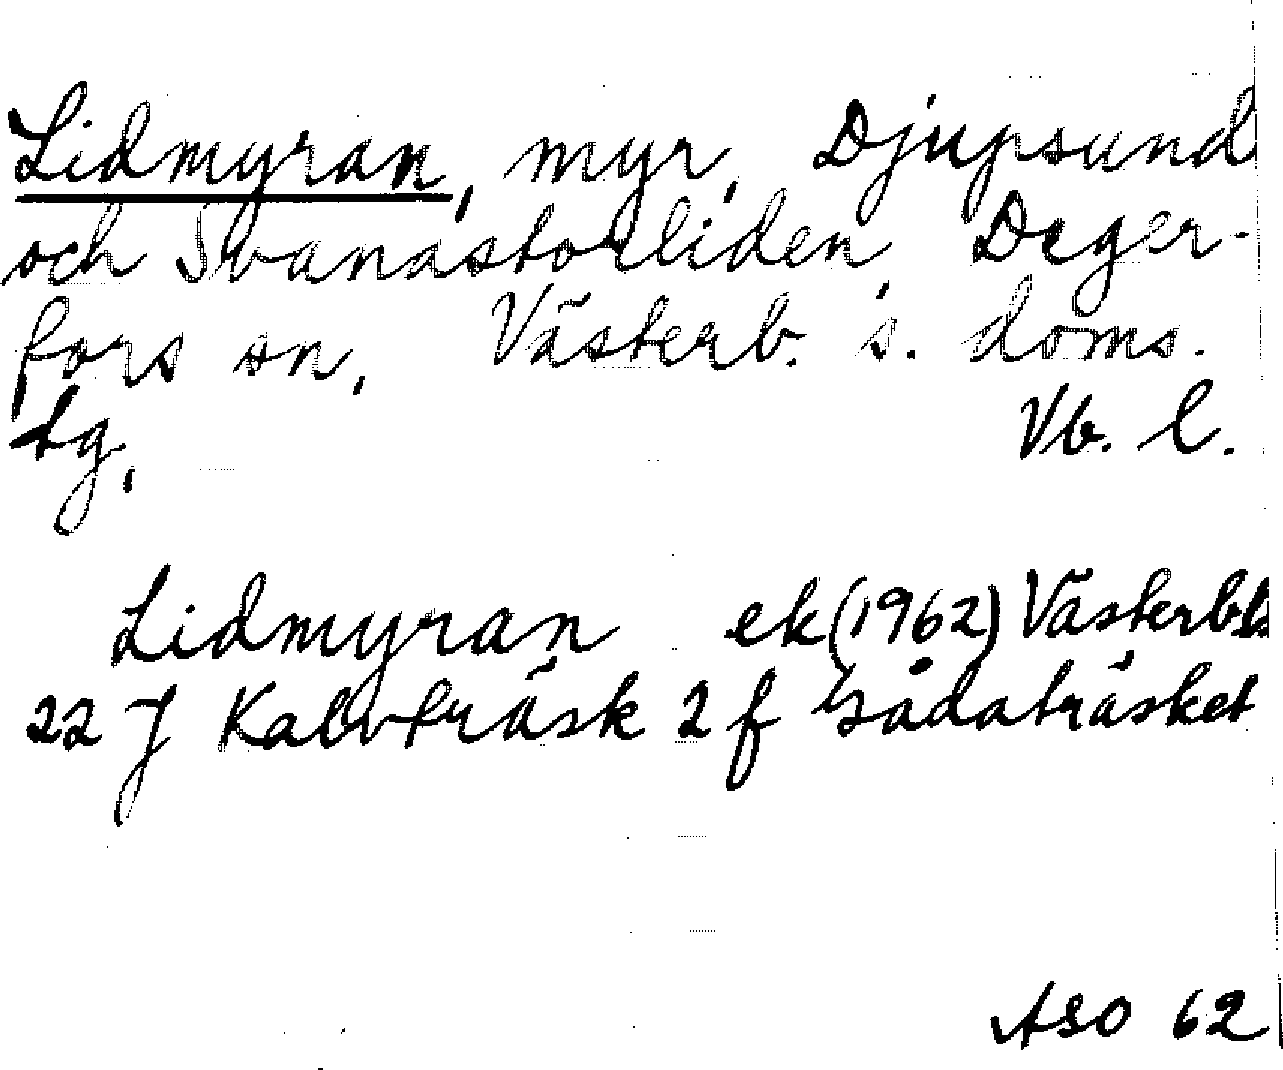 Lidmyran, myr, Djupsund
och Svanåstorliden, Deger-
fors sn, Västerb. s. doms.
tg, Vb. l.
Lidmyran ek (1962) Västerb.
22 J Kalvträsk 2 f
ASO 62